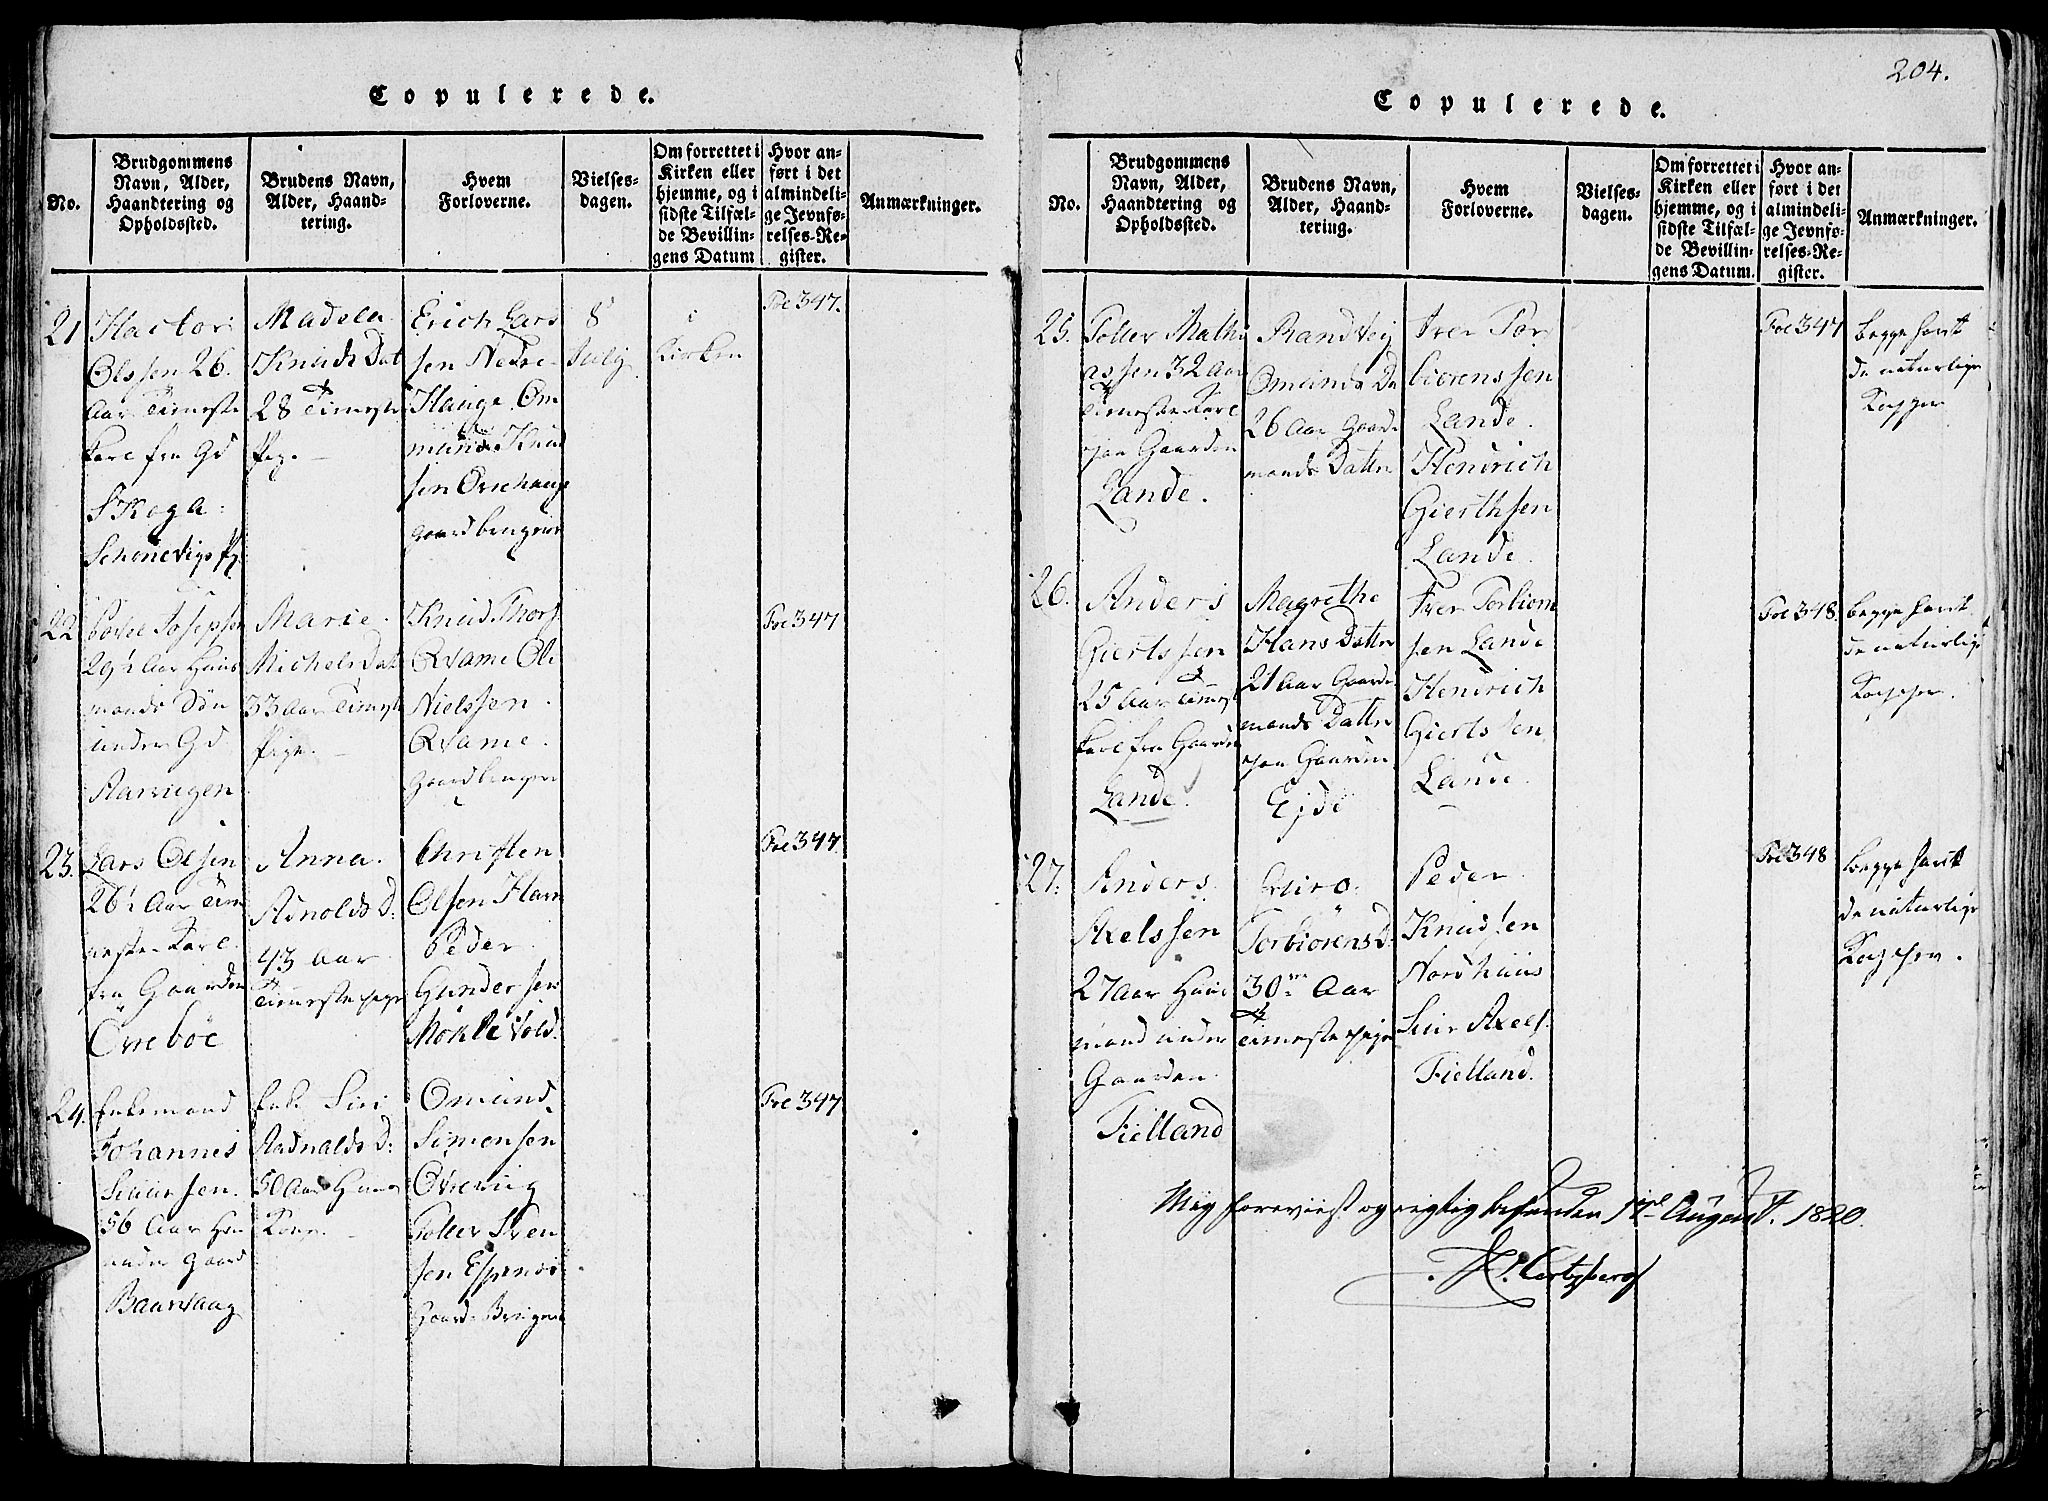 204.
Copulerede.
No.
Brudgommens
Navn, Alder,
Haandtering og
Opholdssted.
Brudens Navn,
Alder, Haand-
tering.
Hvem
Forloverne.
Vielses-
dagen.
Om forrettet i
Kirken eller
hjemme, og i
sidste Tilfæl-
de Bevillin-
gens Datum
Hvor an-
ført i det
almindeli-
ge Jevnfø-
relses-Re-
gister.
Anmærkninger.
21
Hactor
Olssen 26.
Aar Tieneste
Karl fra Gd
Skoga
Schonevigs
Madela
Knuds Dat
28 Tieneste
Pige.
Erich Lars
sen Nedre
Hauge. Om
mund Knud
sen Øvrehauge
gaardbrugere
8
July
i
Kirken
Foe 347.
22
Povel Josepsen
29½ Aar Huus
mands Søn
under Gd
Aarviigen
Marie
Michels Dat
33 Aar Tieneste
Pige.
Knud Thors
Qvame Ole
Nielssen
Qvame.
gaardbruger
Foe 347
23.
Lars Olsen
26½ Aar Tien
neste Karl
fra Gaarden
Övrebøe
Anna
Adnolds D:
43 Aar
Tieneste pige
Christen
Olsen Ham
Peder
Gundersen
Møkle Vold.
Foe 347.
24.
Enkemand
Johannis
Siuursen.
56 Aar
under Gaard
Baarvaag
Enke Siri
Aadnalds D:
50 Aar Huus
Kone.
Omund
Simonsen
Øvrevig
Toller Sven
sen Espenes
Gaard Brugere
Foe 347
Copulerede.
No.
Brudgommens
Navn, Alder,
Haandtering og
Opholdssted.
Brudens Navn,
Alder, Haand-
tering.
Hvem
Forloverne.
Vielses-
dagen.
Om forrettet i
Kirken eller
hjemme, og i
sidste Tilfæl-
de Bevillin-
gens Datum.
Hvor an-
ført i det
almindeli-
ge Jevnfø-
relses-Re-
gister.
Anmærkninger.
25.
Toller Mathi
assen 32 Aar
Tieneste Karl
paa Gaarden
Lande.
Randvei
Omunds Da
26 Aar Gaard
mands Datter
Iver Tor
biørenssen
Lande.
Hendrich
Gierthsen
Lande.
Foe 347
begge havt
de naturlige
Kopper
26.
Anders
Giertssen
25 Aar Tieneste
Karl fra Gaarden
Lande.
Magrethe
Hans Datter
21 Aar Gaard
mands Datter
paa Gaarden
Ejde
Iver Torbiorn
sen Lande
Hendrich
Giertssen
Lande.
Foe 348.
begge havt
de naturlige
Kopper.
27.
Anders
Axelssen
27 Aar Huus
mand under
Gaarden
Fielland
Guro
Torbiørens D:
30 Aar
Tieneste pige
Peder
Knudsen
Nordhuus
Siur Axels
Fielland.
Foe 348
begge havt
de naturlige
Kopper.
Mig foreviist og rigtig befunden August. 1820.
Hertzberg